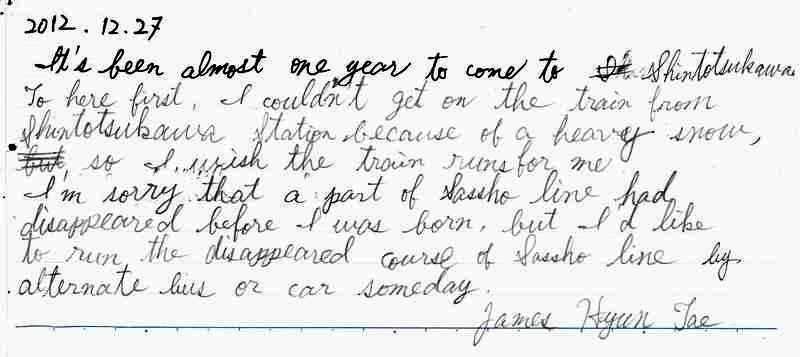 2012.12.27
It's been almost one year to come to Shintotsukawa.
To here first, I couldn't get on the train from
Shintotsukawa Station because of a heavy snow,
but so I wish the train runs for me
I'm sorry that a part of Sassho line had
disappeared before I was born, but I'd like
to run the disappeared course of Sassho line by
alternate bus or car someday.
James Hyun Tae